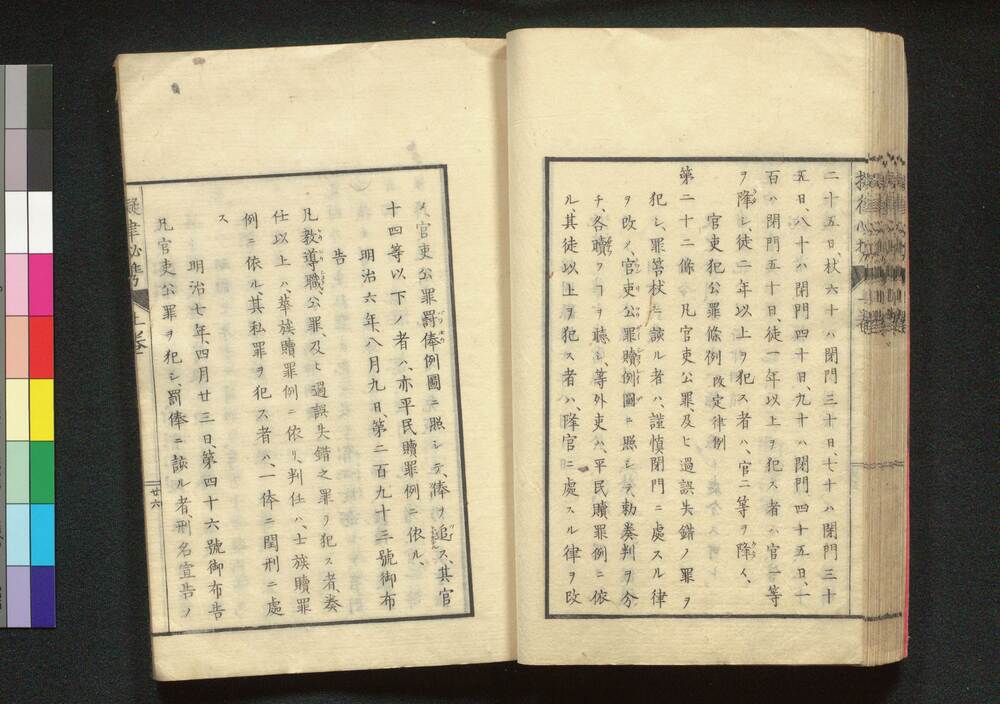 二十五日、杖六十ハ閉門三十日、七十ハ閉門三十
五日、八十ハ閉門四十日、九十ハ閉門四十五日、一
百ハ閉門五十日、徒一年以上ヲ犯ス者ハ官一等
ヲ降シ、徒二年以上ヲ犯ス者ハ、官二等ヲ降ス、
官吏犯公罪條例 改定律例
第二十二條 凡官吏公罪、及ヒ過誤失錯ノ罪ヲ
犯シ、罪笞杖ニ該ル者ハ、謹慎閉門ニ處スル律
ヲ改メ、官吏公罪贖例圖ニ照シテ、勅奏判ヲ分
チ、各贖フヿヲ聽シ、等外吏ハ、平民贖罪例ニ依
ル其徒以上ヲ犯ス者ハ、降官ニ處スル律ヲ改
メ、官吏公罪罰俸例圖ニ照シテ、俸ヲ追ス、其官
十四等以下ノ者ハ、亦平民贖罪例ニ依ル、
明治六年、八月九日、第二百九十三號御布
告
凡教導職、公罪、及ヒ過誤失錯之罪ヲ犯ス者、奏
仕以上ハ、華族贖罪例ニ依リ、判任ハ、士族贖罪
例ニ依ル、其私罪ヲ犯ス者ハ、一体ニ閏刑ニ處
ス
明治七年、四月廿三日、第四十六號御布告
凡官吏公罪ヲ犯シ、罰俸ニ該ル者、刑名宣告ノ
擬律必携 上巻
廿六